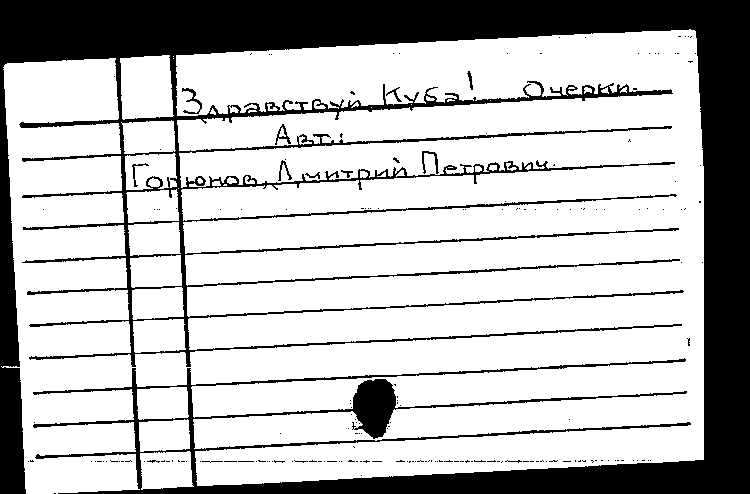 Здравствуй, Куба! Очерки.
Авт.:
Горюнов, Дмитрий Петрович.